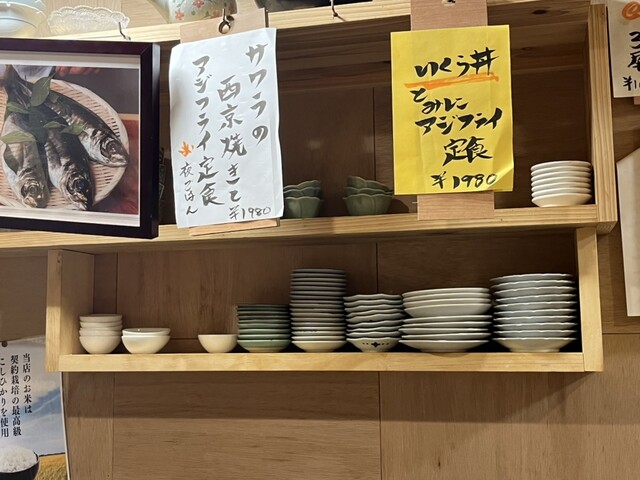 サワラの
西京焼きと
アジフライ定食
¥1980
いくら丼
とみに
アジフライ
定食
¥1980
当店のお米は
契約栽培の最高級
こしひかりを使用